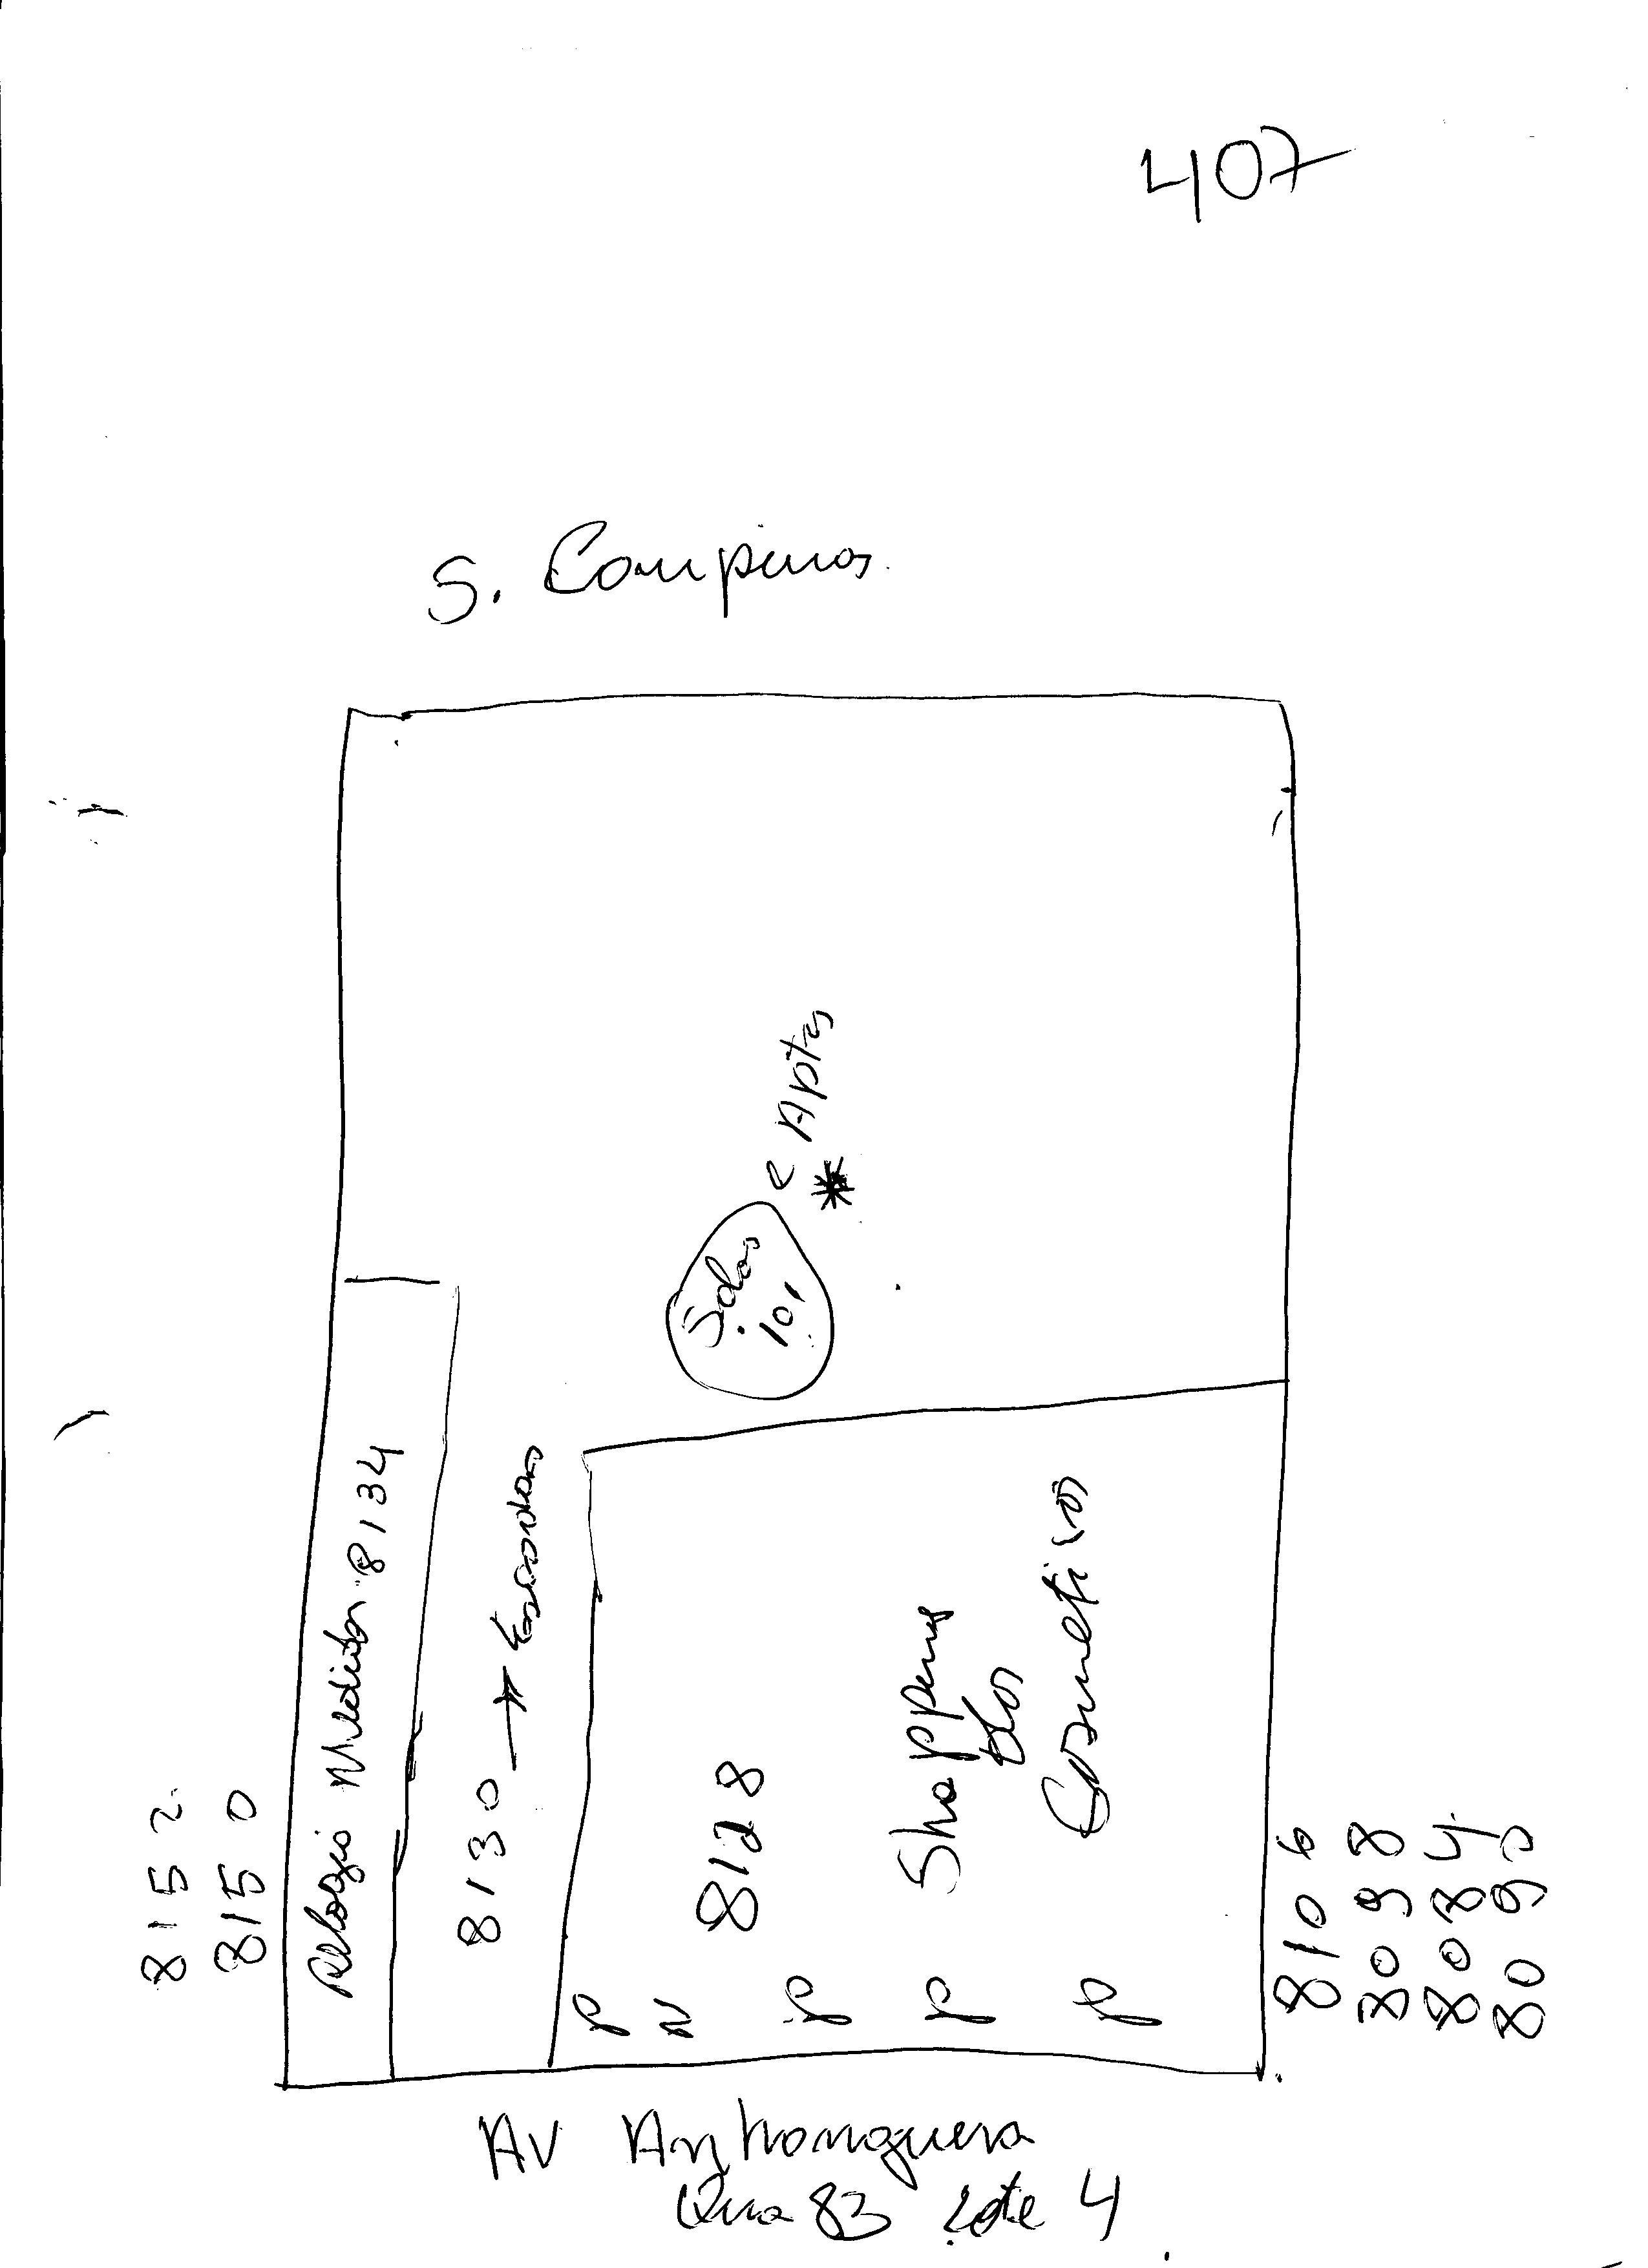 407
S. Campinas.
e Aptos
*
Salas
101
Relogio Medidor 8134
8130 → Escadas
8152
8150
8128
Shopping
dos
Cosmeticos
P
N
P
P
P
8106
8098
8084
8095
AV Anhanguera
Qua 83 Lote 4